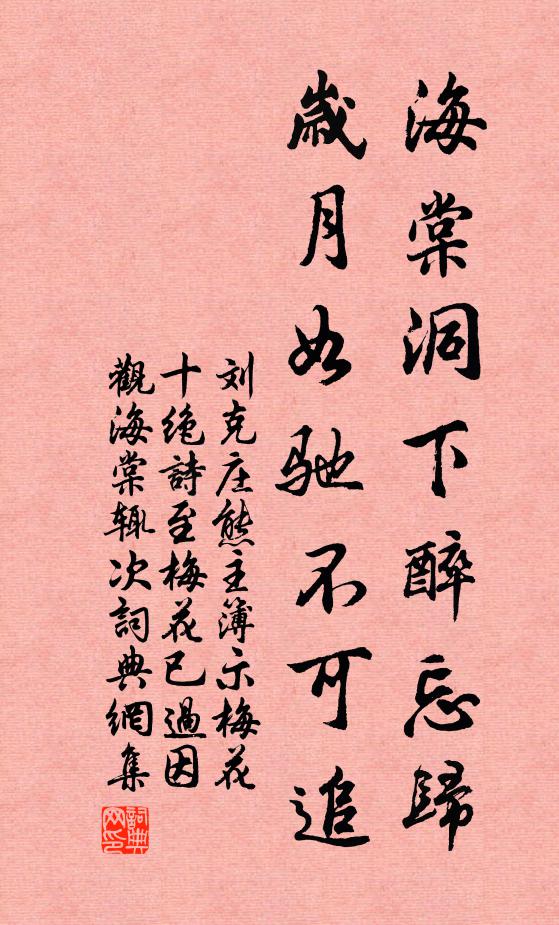 海棠洞下醉忘歸
歲月如馳不可追
刘克庄熊主簿示梅花
十绝詩至梅花已過因
觀海棠辄次詞典網集
詞典
网印